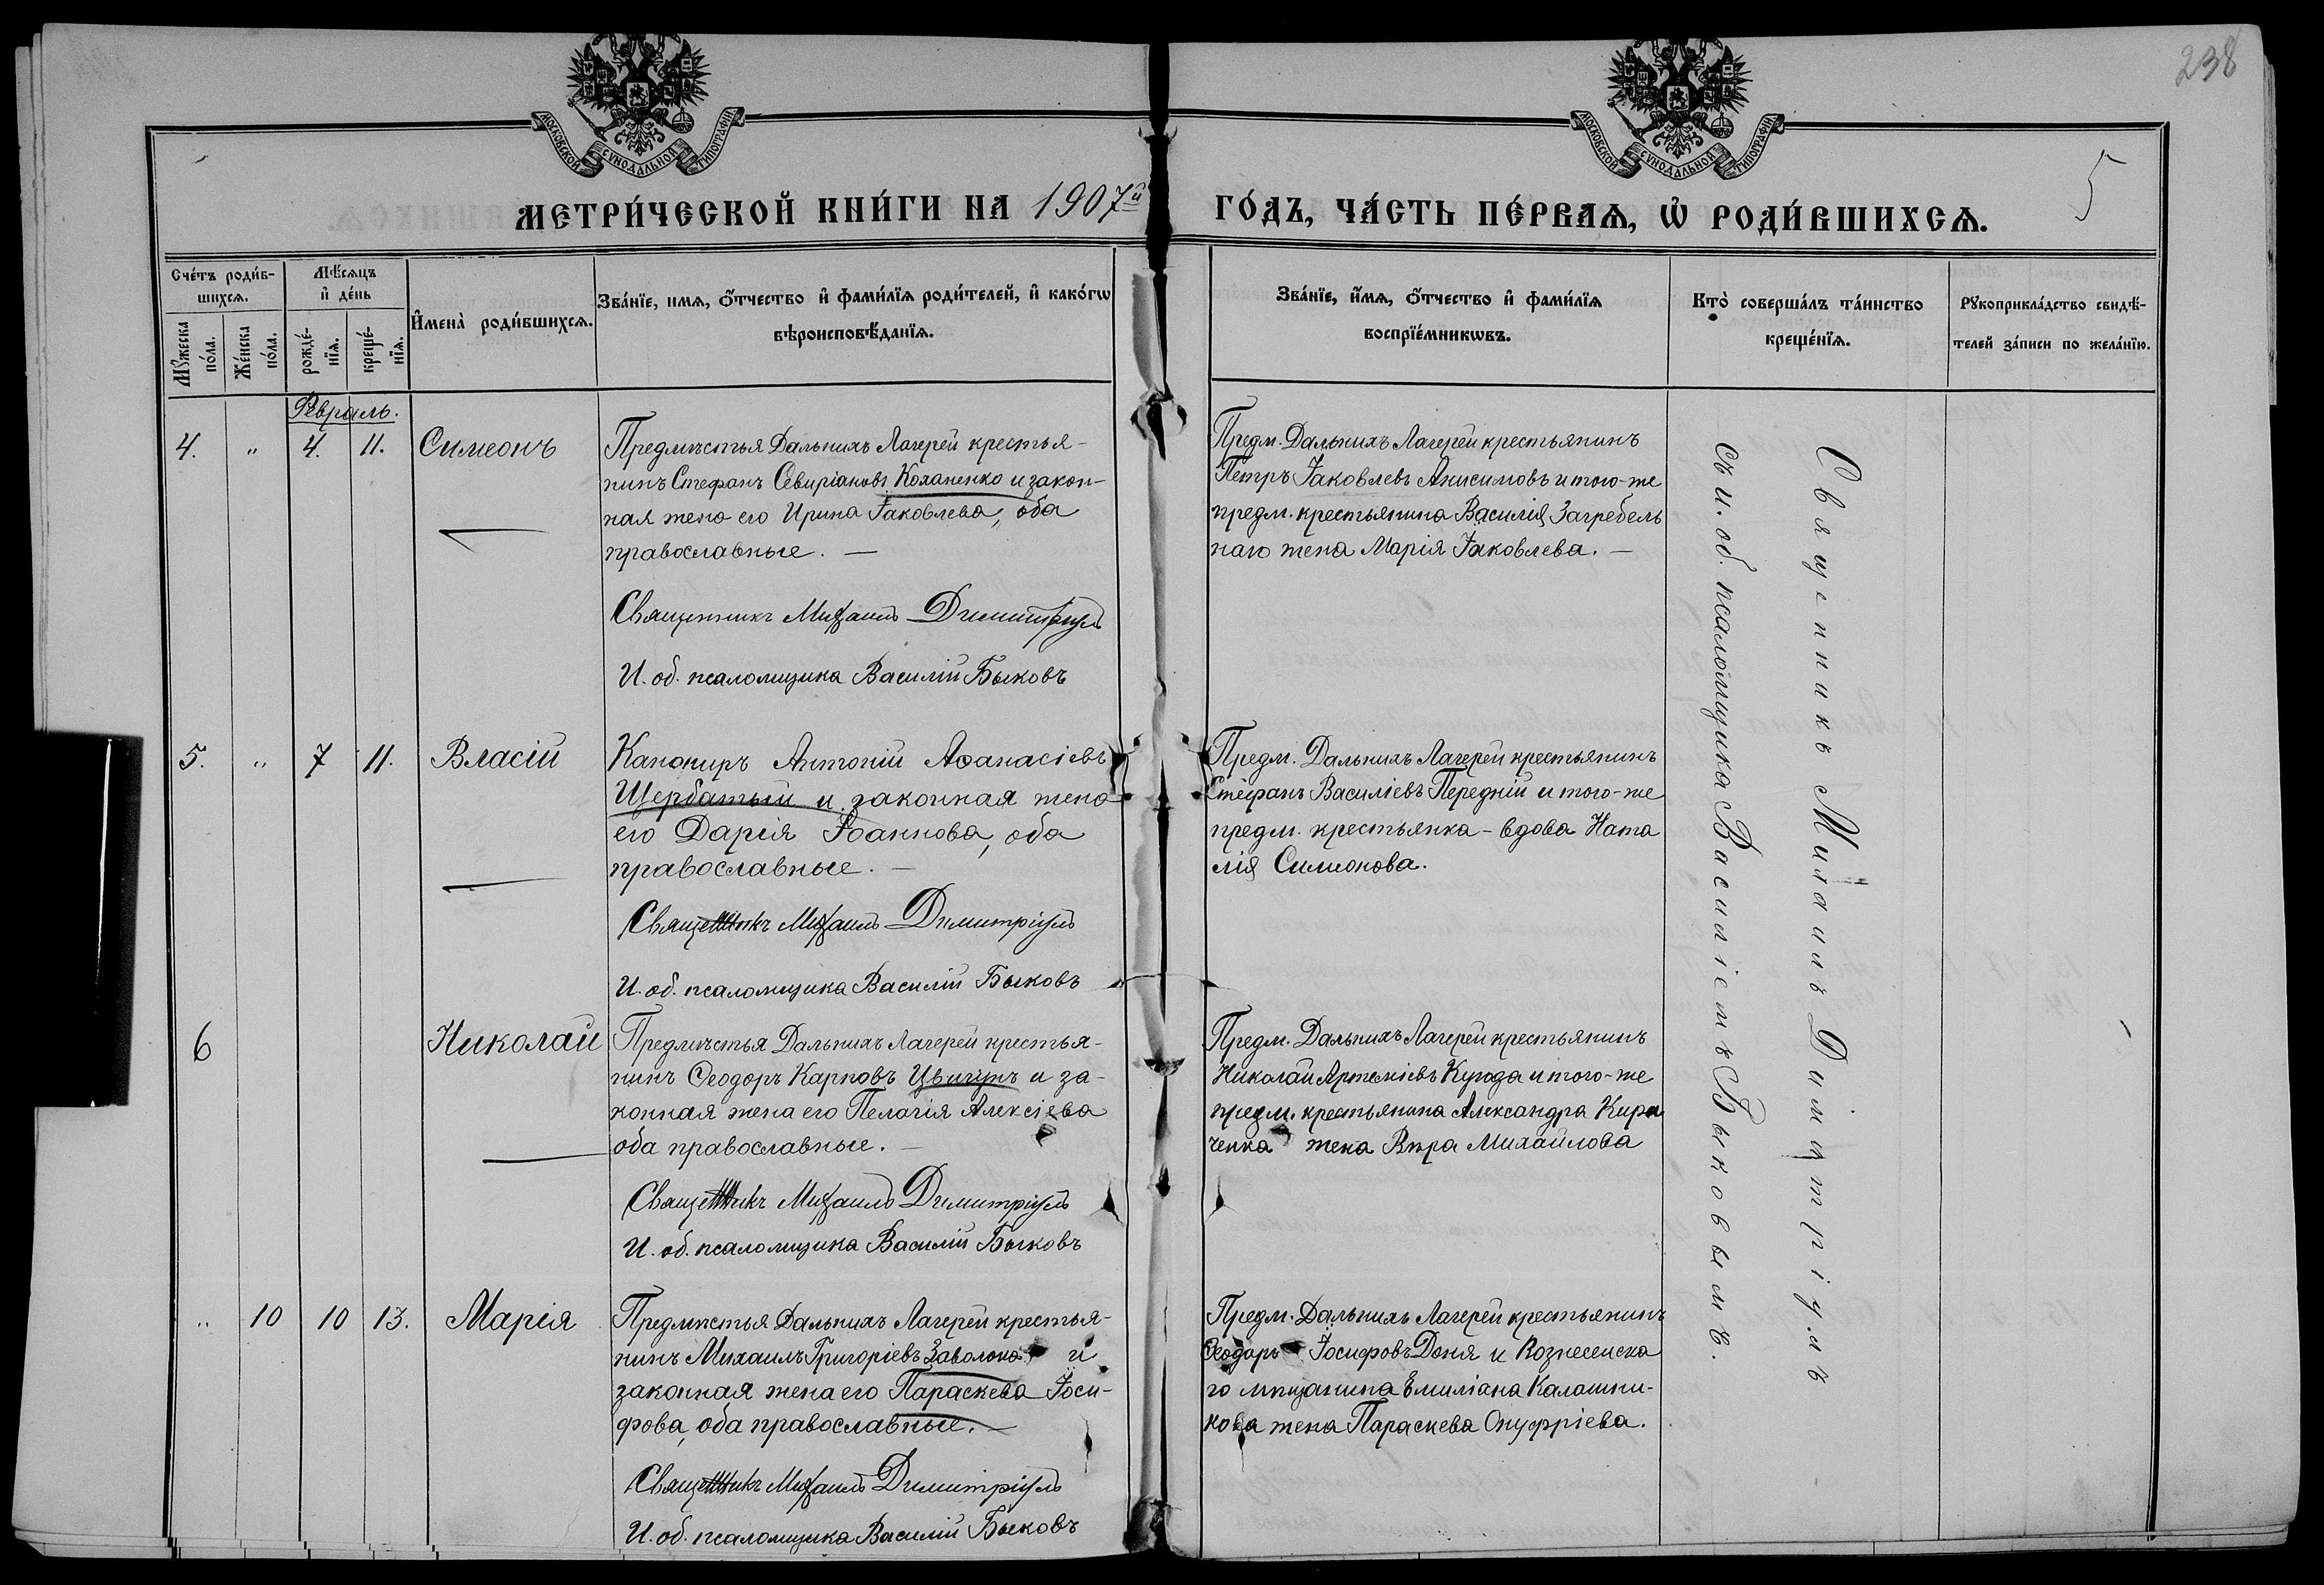 238
5
МОСКОВСКОЙ СѴНОДАЛЬНОЙ ТИПОГРАФІИ
МОСКОВСКОЙ СѴНОДАЛЬНОЙ ТИПОГРАФІИ
МЕТРИ́ЧЕСКОЙ КНИ́ГИ НА 1907й ГО́ДЪ, ЧА́СТЬ ПЕ́РВАѦ, Ѽ РОДИ́ВШИХСѦ.
Сче́тъ роди́в-
шихсѧ.
Мꙋжеска
по́ла.
Же́нска
по́ла.
Мѣ́сѧцъ
и҆ де́нь
рожде́-
нїѧ.
креще́-
нїѧ.
И҆мена̀ роди́вшихсѧ.
Зва́нїе, имѧ, ѻ҆́тчество и҆ фами́лїѧ роди́телей, и҆ како́гѡ
вѣроисповѣ́данїѧ.
Зва́нїе, и҆́мѧ, ѻ҆́тчество и҆ фами́лїѧ
воспрїе́мникѡвъ.
Кто̀ соверша́лъ та́инство
креще́нїѧ.
Рꙋкоприкла́дство свидѣ́-
телей за́писи по жела́нїю.
Февраль.
4. " 4. 11. Симеонъ
Предмѣстья Дальнихъ Лагерей крестья-
нинъ Стефанъ Севиріановъ Коханенко и закон-
ная жена его Ирина Іаковлева, оба
православные. —
Священникъ Михаилъ Димитріул
И. об. псаломщика Василій Быковъ
Предм. Дальнихъ Лагерей крестьянинъ
Петръ Іаковлевъ Анисимовъ и того-же
предм. крестьянина Василія Загребель
наго жена Марія Іаковлева. —
5. " 7 11. Власій
Канониръ Антоній Аѳанасіевъ
Щербатый и законная жена
его Дарія Іоаннова, оба
православные. —
Священникъ Михаилъ Димитріул
И. об. псаломщика Василій Быковъ
Предм. Дальнихъ Лагерей крестьянинъ
Стефанъ Василіевъ Передній и того-же
предм. крестьянка - вдова Ната
лія Симеонова.
6 Николай
Предмѣстья Дальнихъ Лагерей крестья-
нинъ Ѳеодоръ Карповъ Цвигунъ и за-
конная жена его Пелагія Алексіева
оба православные. —
Священникъ Михаилъ Димитріул
И. об. псаломщика Василій Быковъ
Предм. Дальнихъ Лагерей крестьянинъ
Николай Артеміевъ и того-же
предм. крестьянина Александра Кири
ченка жена Вѣра Михайлова
" 10 10 13. Марія
Предмѣстья Дальнихъ Лагерей крестья-
нинъ Михаилъ Григоріевъ Заволока и
законная жена его Параскева Іоси-
фова, оба православные. —
Священникъ Михаилъ Димитріул
И. об. псаломщика Василій Быковъ
Предм. Дальнихъ Лагерей крестьянинъ
Ѳеодоръ Іосифовъ Доня и Вознесенска
го мѣщанина Емиліана Калашни-
кова жена Параскева Онуфріева.
Священникъ Михаилъ Димитріул
съ и. об. псаломщика Василіемъ Быковымъ.